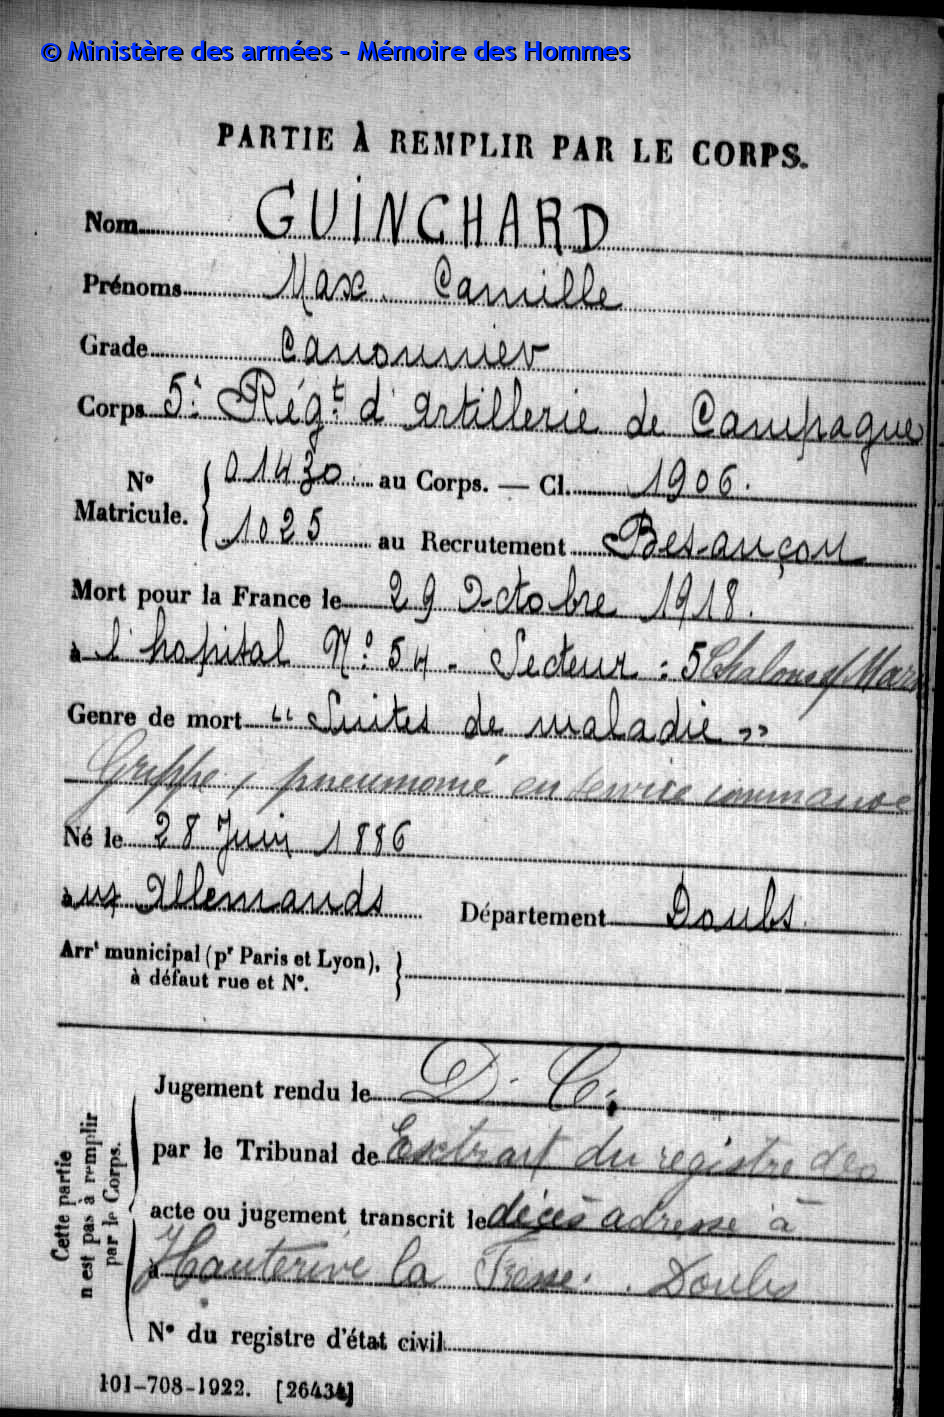 © Ministère des armées - Mémoire des Hommes
PARTIE À REMPLIR PAR LE CORPS.
Nom GUINCHARD
Prénoms Max. Camille
Grade Canonnier
Corps 5e Régt d'Artillerie de Campagne
N° Matricule. 01430. au Corps. — Cl. 1906.
1025 au Recrutement Besançon
Mort pour la France le 29 Octobre 1918.
à l'hopital N° 54 - Secteur : 5 Chalons s/ Marne
Genre de mort "Suites de maladie"
Grippe, pneumonie en service commandé
Né le 28 Juin 1886
aux Allemands Département Doubs
Arrt municipal (pr Paris et Lyon),
à défaut rue et N°.
Cette partie n'est pas à remplir par le Corps.
Jugement rendu le D. C.
par le Tribunal de Extrait du registre des
acte ou jugement transcrit le décès adressé à
à Hauterive la Fresse. Doubs
N° du registre d'état civil
101-708-1922. [26434]